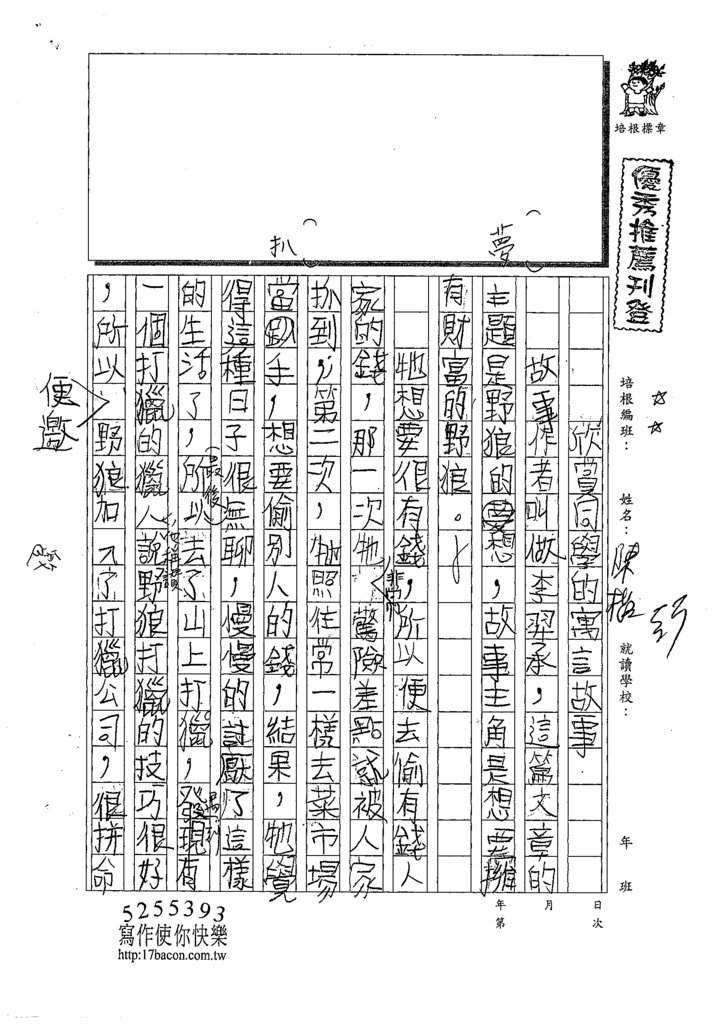 培根標章
優秀推薦刊登
培根編班：
姓名：陳
就讀學校：
年 班
日 月 年
次 第
夢
扒
欣賞同學的寓言故事
故事作者叫做李羿承，這篇文章的
主題是野狼的夢想，故事主角是想要擁
有財富的野狼。
牠想要很有錢，所以便去偷有錢人
家的錢，那一次牠非常驚險差點就被人家
抓到，第二次，牠照往常一樣去菜市場
當扒手，想要偷別人的錢，結果，牠覺
得這種日子很無聊，慢慢的討厭了這樣
的生活了，所以最後去了山上打獵，發現有
一個打獵的獵人說野狼打獵的技巧很好
，所以便邀野狼加入了打獵公司，很拼命
5255393
寫作使你快樂
http:17bacon.com.tw